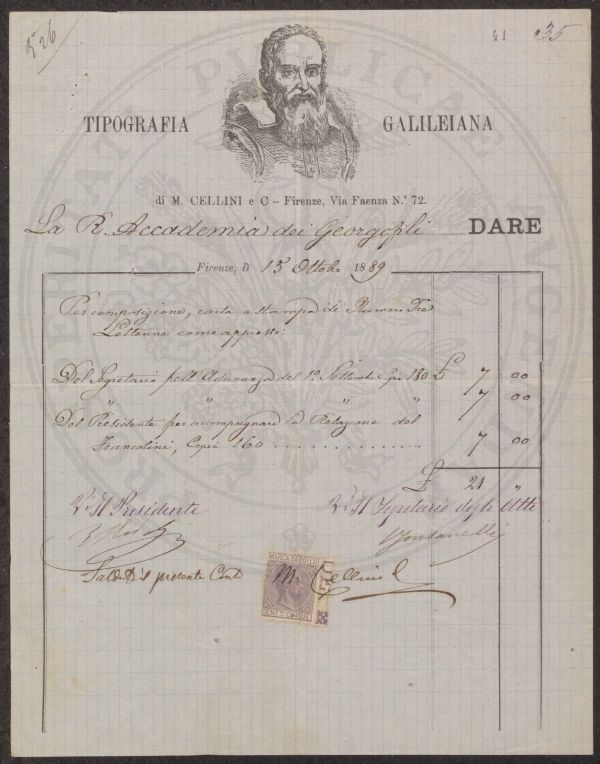 526
41 35
TIPOGRAFIA GALILEIANA
di M. CELLINI e C – Firenze, Via Faenza N.º 72.
La R. Accademia dei Georgofili DARE
Firenze, D 15 Ottobre 1889
Per composizione, carta e stampa di Numero Tre
Lettere come appresso:
Del Segretario pell'Adunanza del 1º Settembre Copie 180 £ 7 00
" " " " 7 00
Del Presidente per accompagnare la Relazione del
Francolini, Copie 460 7 00
£ 21 "
Vº Il Presidente Vº Il Segretario degli Atti
Fontanelli
Saldato il presente Conto M. Cellini e C
MARCA DA BOLLO